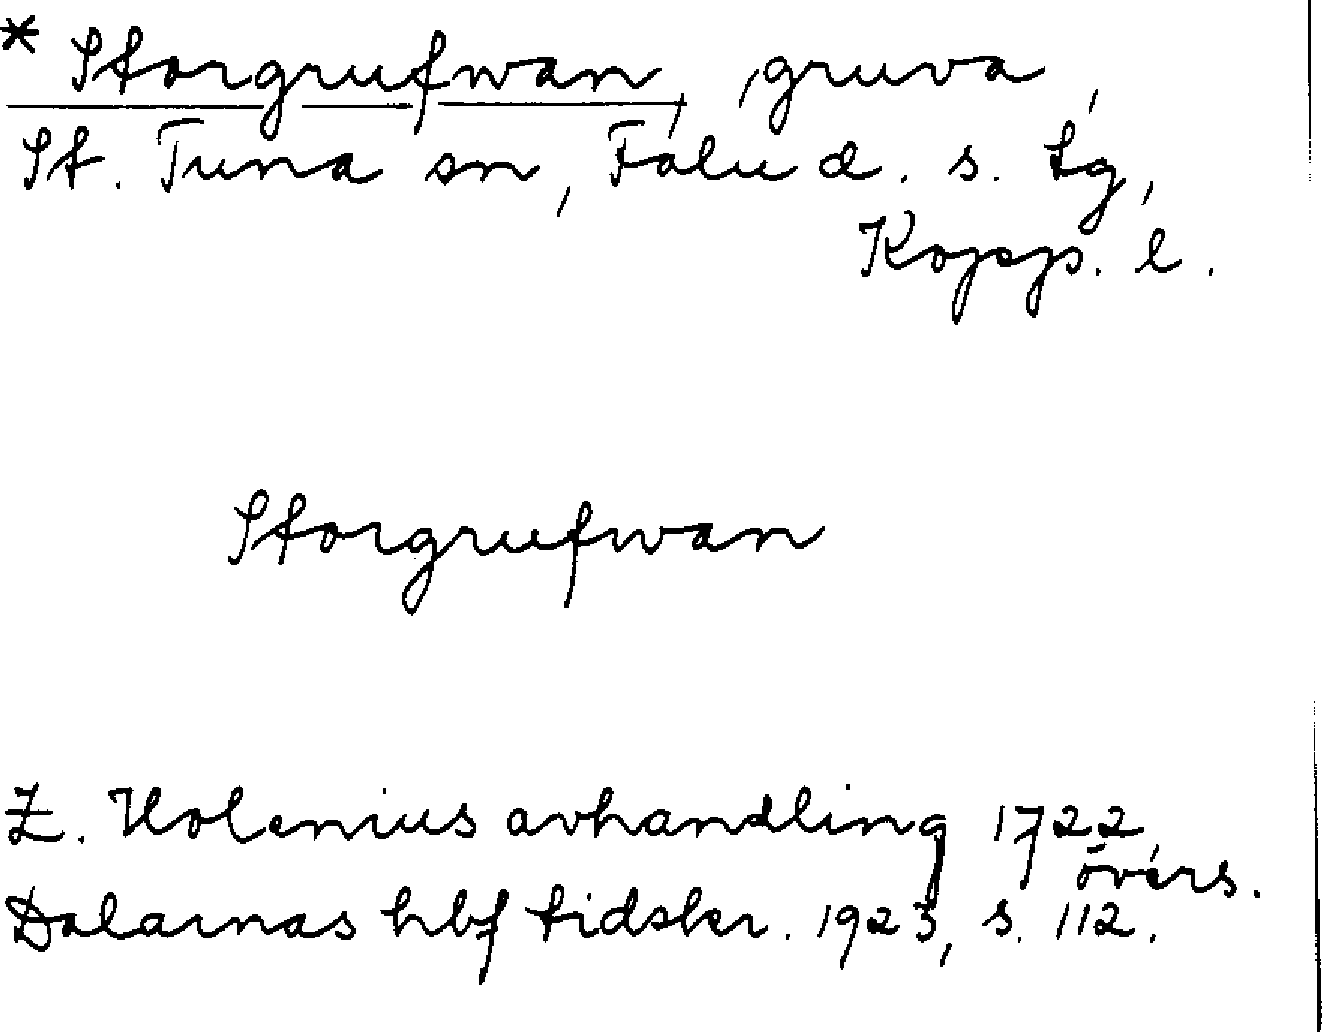 * Storgrufwan, gruva,
St. Tuna sn, Falu d. s. tg,
Kopp. l.
Storgrufwan
Z. Holenius avhandling 1722,
övers.
Dalarnas hbf tidskr. 1923, s. 112.